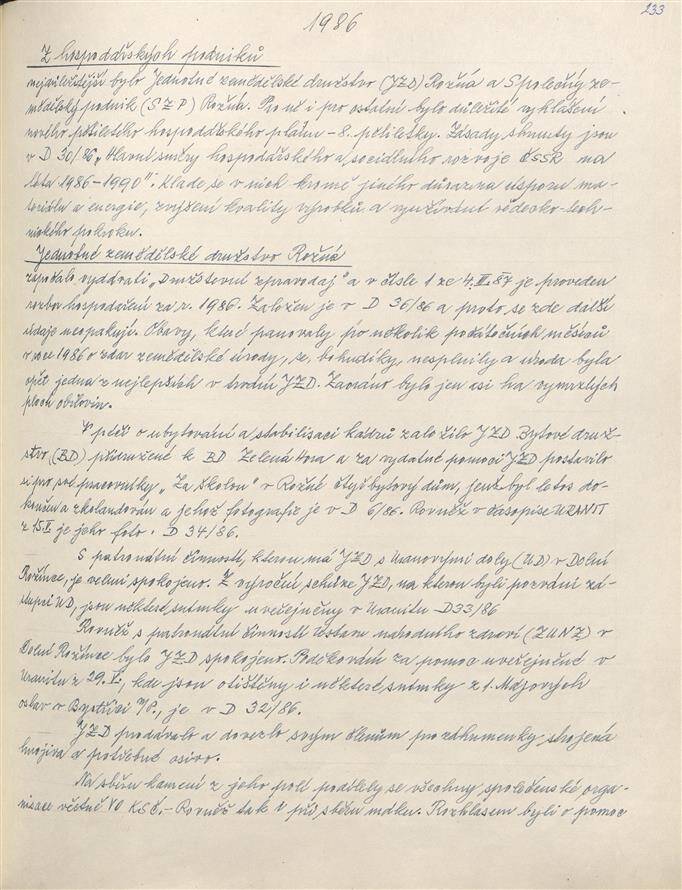 233
1986
Z hospodářských podniků
nejdůležitější bylo Jednotné zemědělské družstvo (JZD) Rožná a Společný ze-
mědělský podnik (SZP) Rožná. Pro ně i pro ostatní bylo důležité vyhlášení
nového pětiletého hospodářského plánu – 8. pětiletky. Zásady shrnuty jsou
v D 30/86, Hlavní směry hospodářského a sociálního rozvoje ČSSR na
léta 1986–1990". Klade se v nich kromě jiného důraz na úsporu ma-
teriálu a energie, zvýšení kvality výrobků a využívání vědecko-tech-
nického pokroku.
Jednotné zemědělské družstvo Rožná
započalo vydávati „Družstevní zpravodaj" a v čísle 1 ze 4.II.87 je proveden
rozbor hospodaření za r. 1986. Založen je v D 36/86 a proto se zde další
údaje neopakují. Obavy, které panovaly po několik počátečních měsíců
v roce 1986 o zdar zemědělské úrody, se, bohudíky, nesplnily a úroda byla
opět jedna z nejlepších v trvání JZD. Zaoráno bylo jen asi ha vymrzlých
ploch obilovin.
V péči o ubytování a stabilisaci kádrů založilo JZD Bytové druž-
stvo (BD) přidružené k BD Zelená Hora a za vydatné pomoci JZD postavilo
si pro své pracovníky „Za školou" v Rožné čtyřbytový dům, jenž byl letos do-
končen a zkolaudován a jehož fotografie je v D 6/86. Rovněž v časopise URANIT
z 15.I. je jeho foto. D 34/86.
S patronátní činností, kterou má JZD s Uranovými doly (UD) v Dolní
Rožínce, je velmi spokojeno. Z výroční schůze JZD, na kterou byli pozváni zá-
stupci UD, jsou některé snímky uveřejněny v Uranitu – D33/86
Rovněž s patronátní činností Ústavu národního zdraví (ZÚNZ) v
Dolní Rožínce bylo JZD spokojeno. Poděkování za pomoc uveřejněné v
Uranitu z 29.V., kde jsou otištěny i některé snímky z 1. Májových
oslav v Bystřici n/P., je v D 32/86.
JZD prodávalo a dovezlo svým členům pro záhumenky strojená
hnojiva a potřebné osivo.
Na sběru kamení z jeho polí podílely se všechny společenské orga-
nizace včetně VO KSČ. – Rovněž tak i při sběru máku. Rozhlasem byli o pomoc